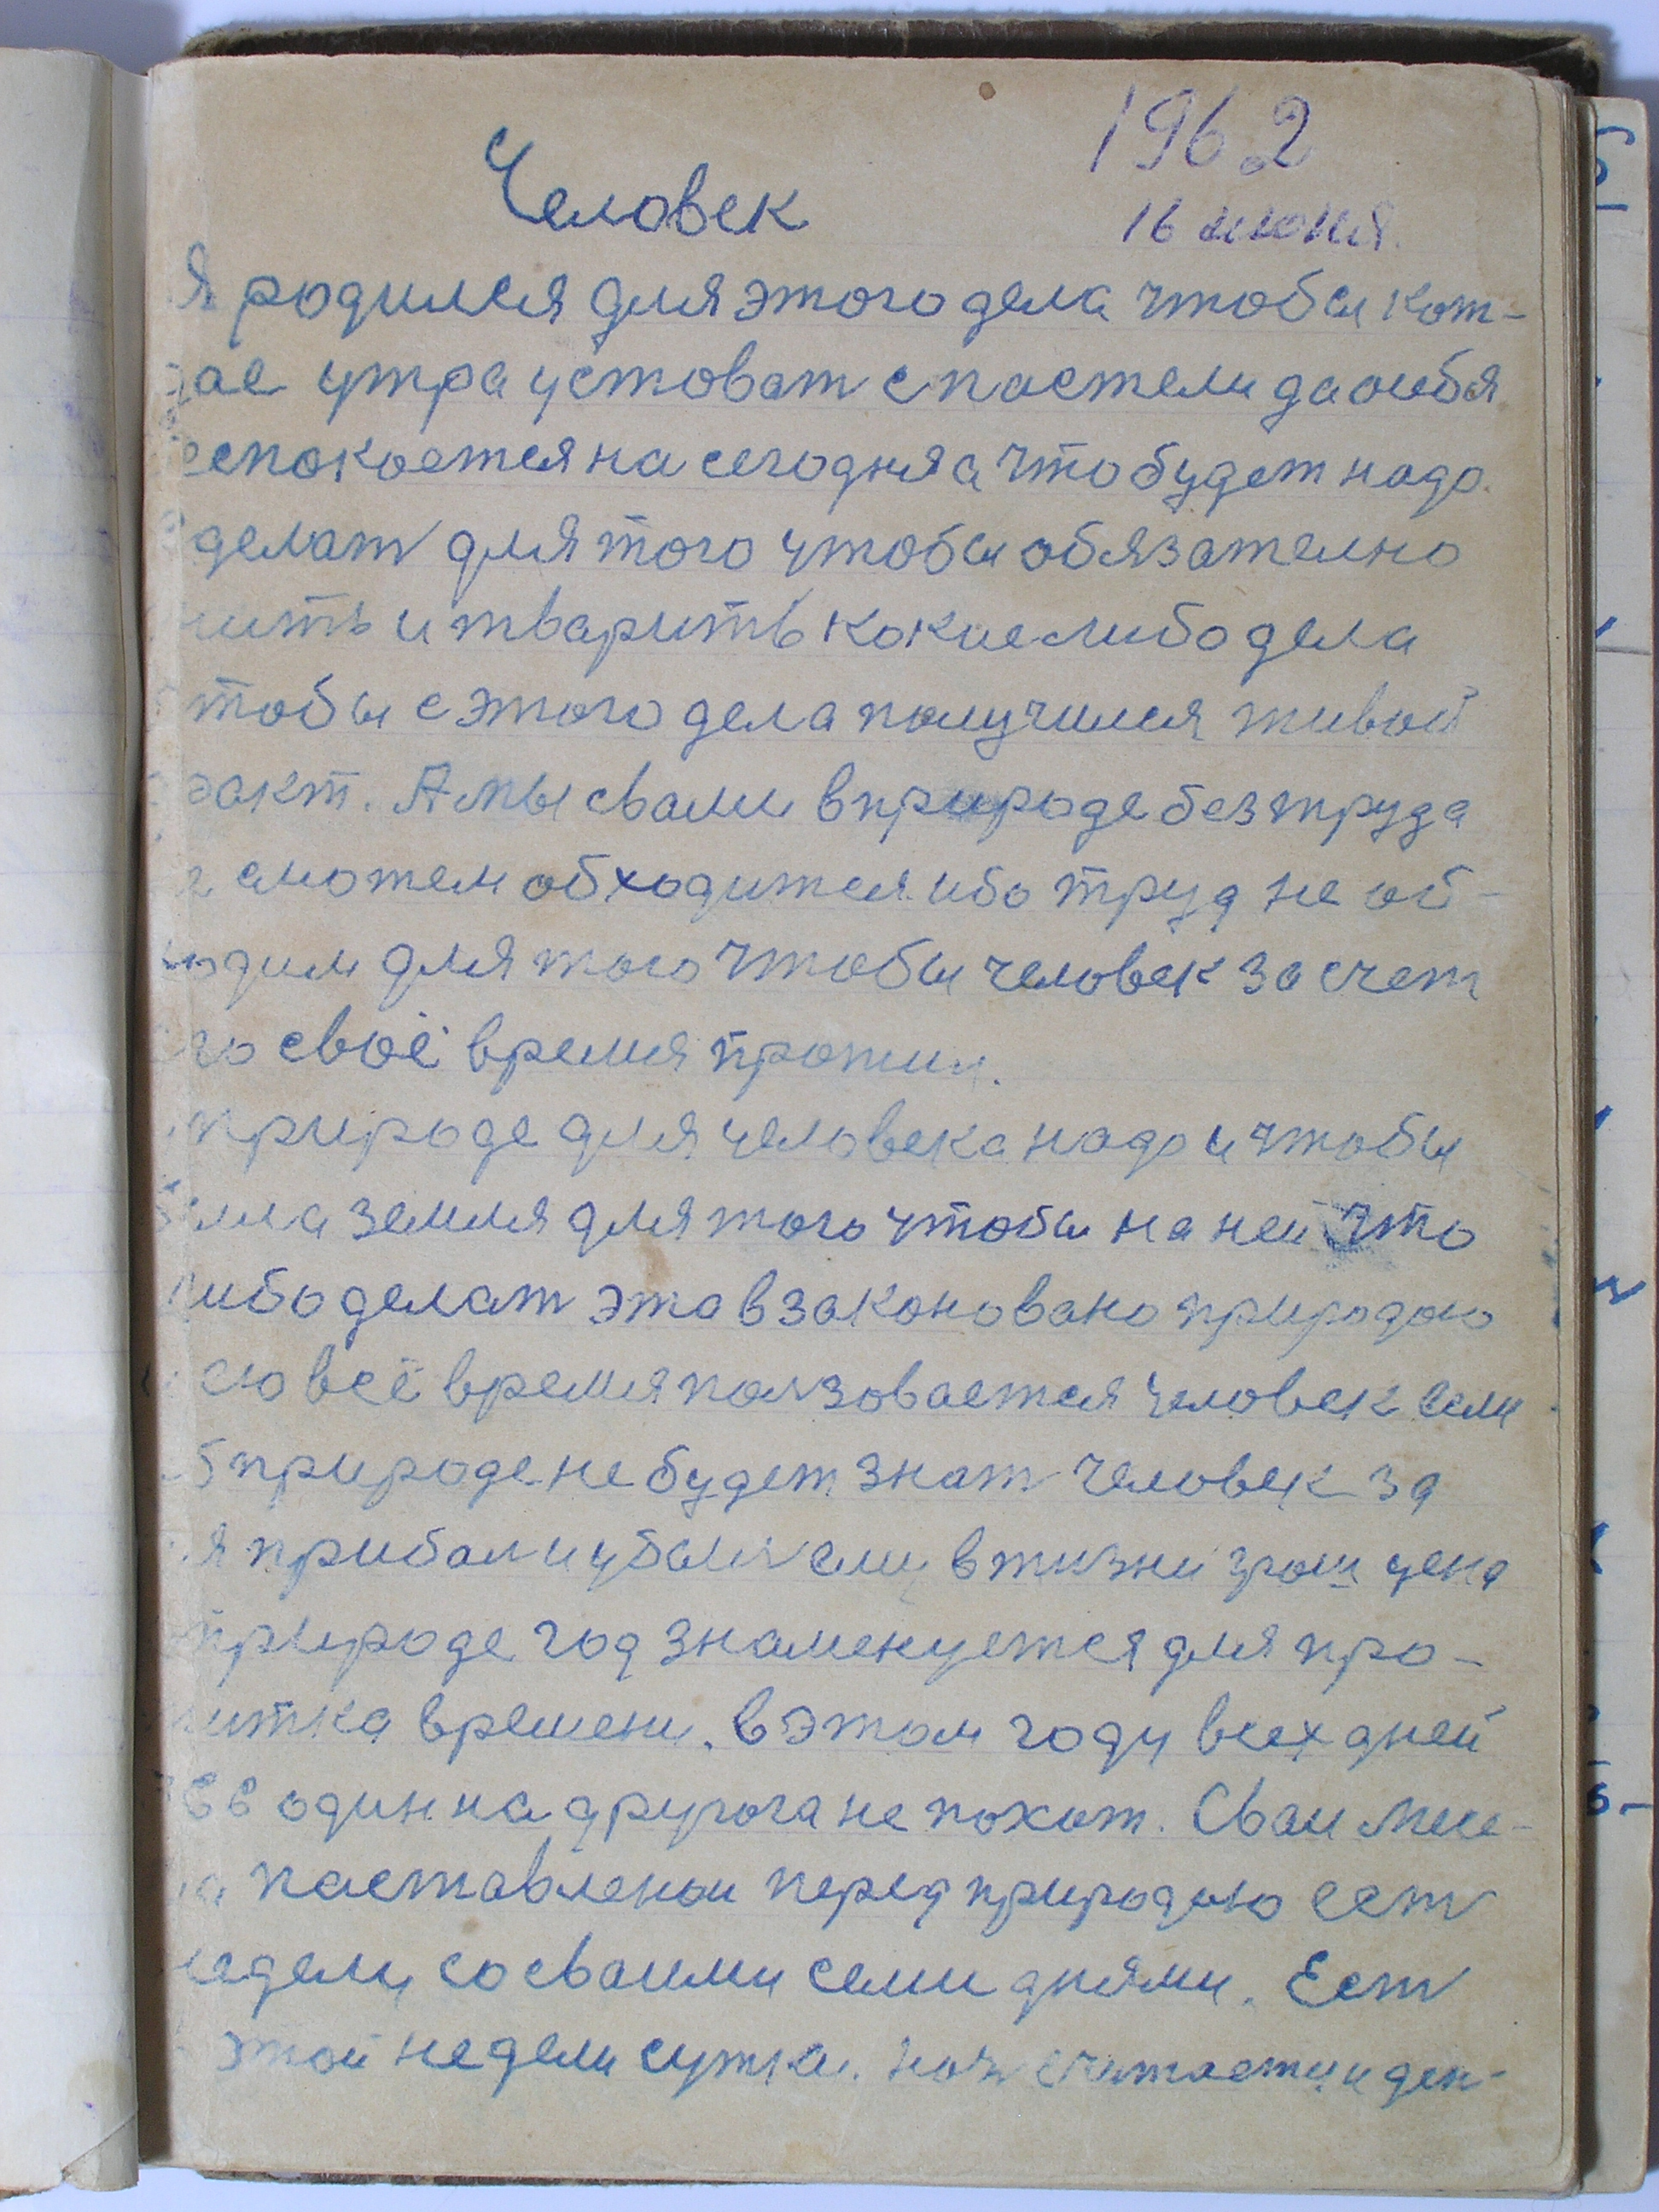 1962
Человек
16 июня.
Я родился для этого дела чтобы кож-
дае утра устоват с пастели да сибя
еспокоется на сегодня а что будет надо
делат для того чтобы обязателно
жить и тварить кокие либо дела
тобы с этого дела получился живой
факт. А мы свами в природе без труда
е сможем обходится ибо труд не об-
ходим для того чтобы человек за счет
го своё время прожил.
природе для человека надо и чтобы
была земля для того чтобы на ней что
либо делат это взаконовано природою
ею всё время ползовается человек если
б природе не будет знат человек за
я прибыл и убыль ему в жизни грош цена
природе год знаменуется для про-
житка времени. в этом году всех дней
один на другога не похож. Сваи меся-
ца паставленаи перед природою ест
недели со сваими семи днями. Ест
этой недели сутка. ноч считается и ден-